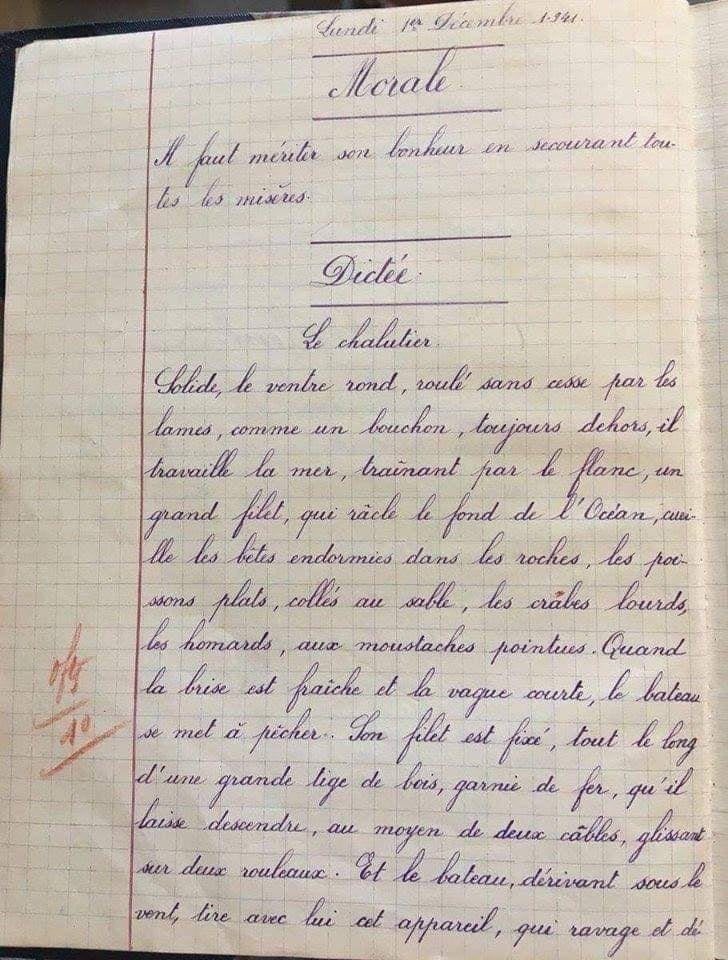 Lundi 1er Décembre 1941.
Morale
Il faut mériter son bonheur en secourant tou-
tes les misères.
Dictée.
Le chalutier.
Solide, le ventre rond, roulé sans cesse par les
lames, comme un bouchon, toujours dehors, il
travaille la mer, traînant par le flanc, un
grand filet, qui râcle le fond de l'Océan, cuei-
lle les bêtes endormies dans les roches, les poi-
ssons plats, collés au sable, les crâbes lourds,
les homards, aux moustaches pointues. Quand
la brise est fraîche et la vague courte, le bateau
se met à pêcher. Son filet est fixé, tout le long
d'une grande tige de bois, garnie de fer, qu'il
laisse descendre, au moyen de deux câbles, glissant
sur deux rouleaux. Et le bateau, dérivant sous le
vent, tire avec lui cet appareil, qui ravage et dé
10